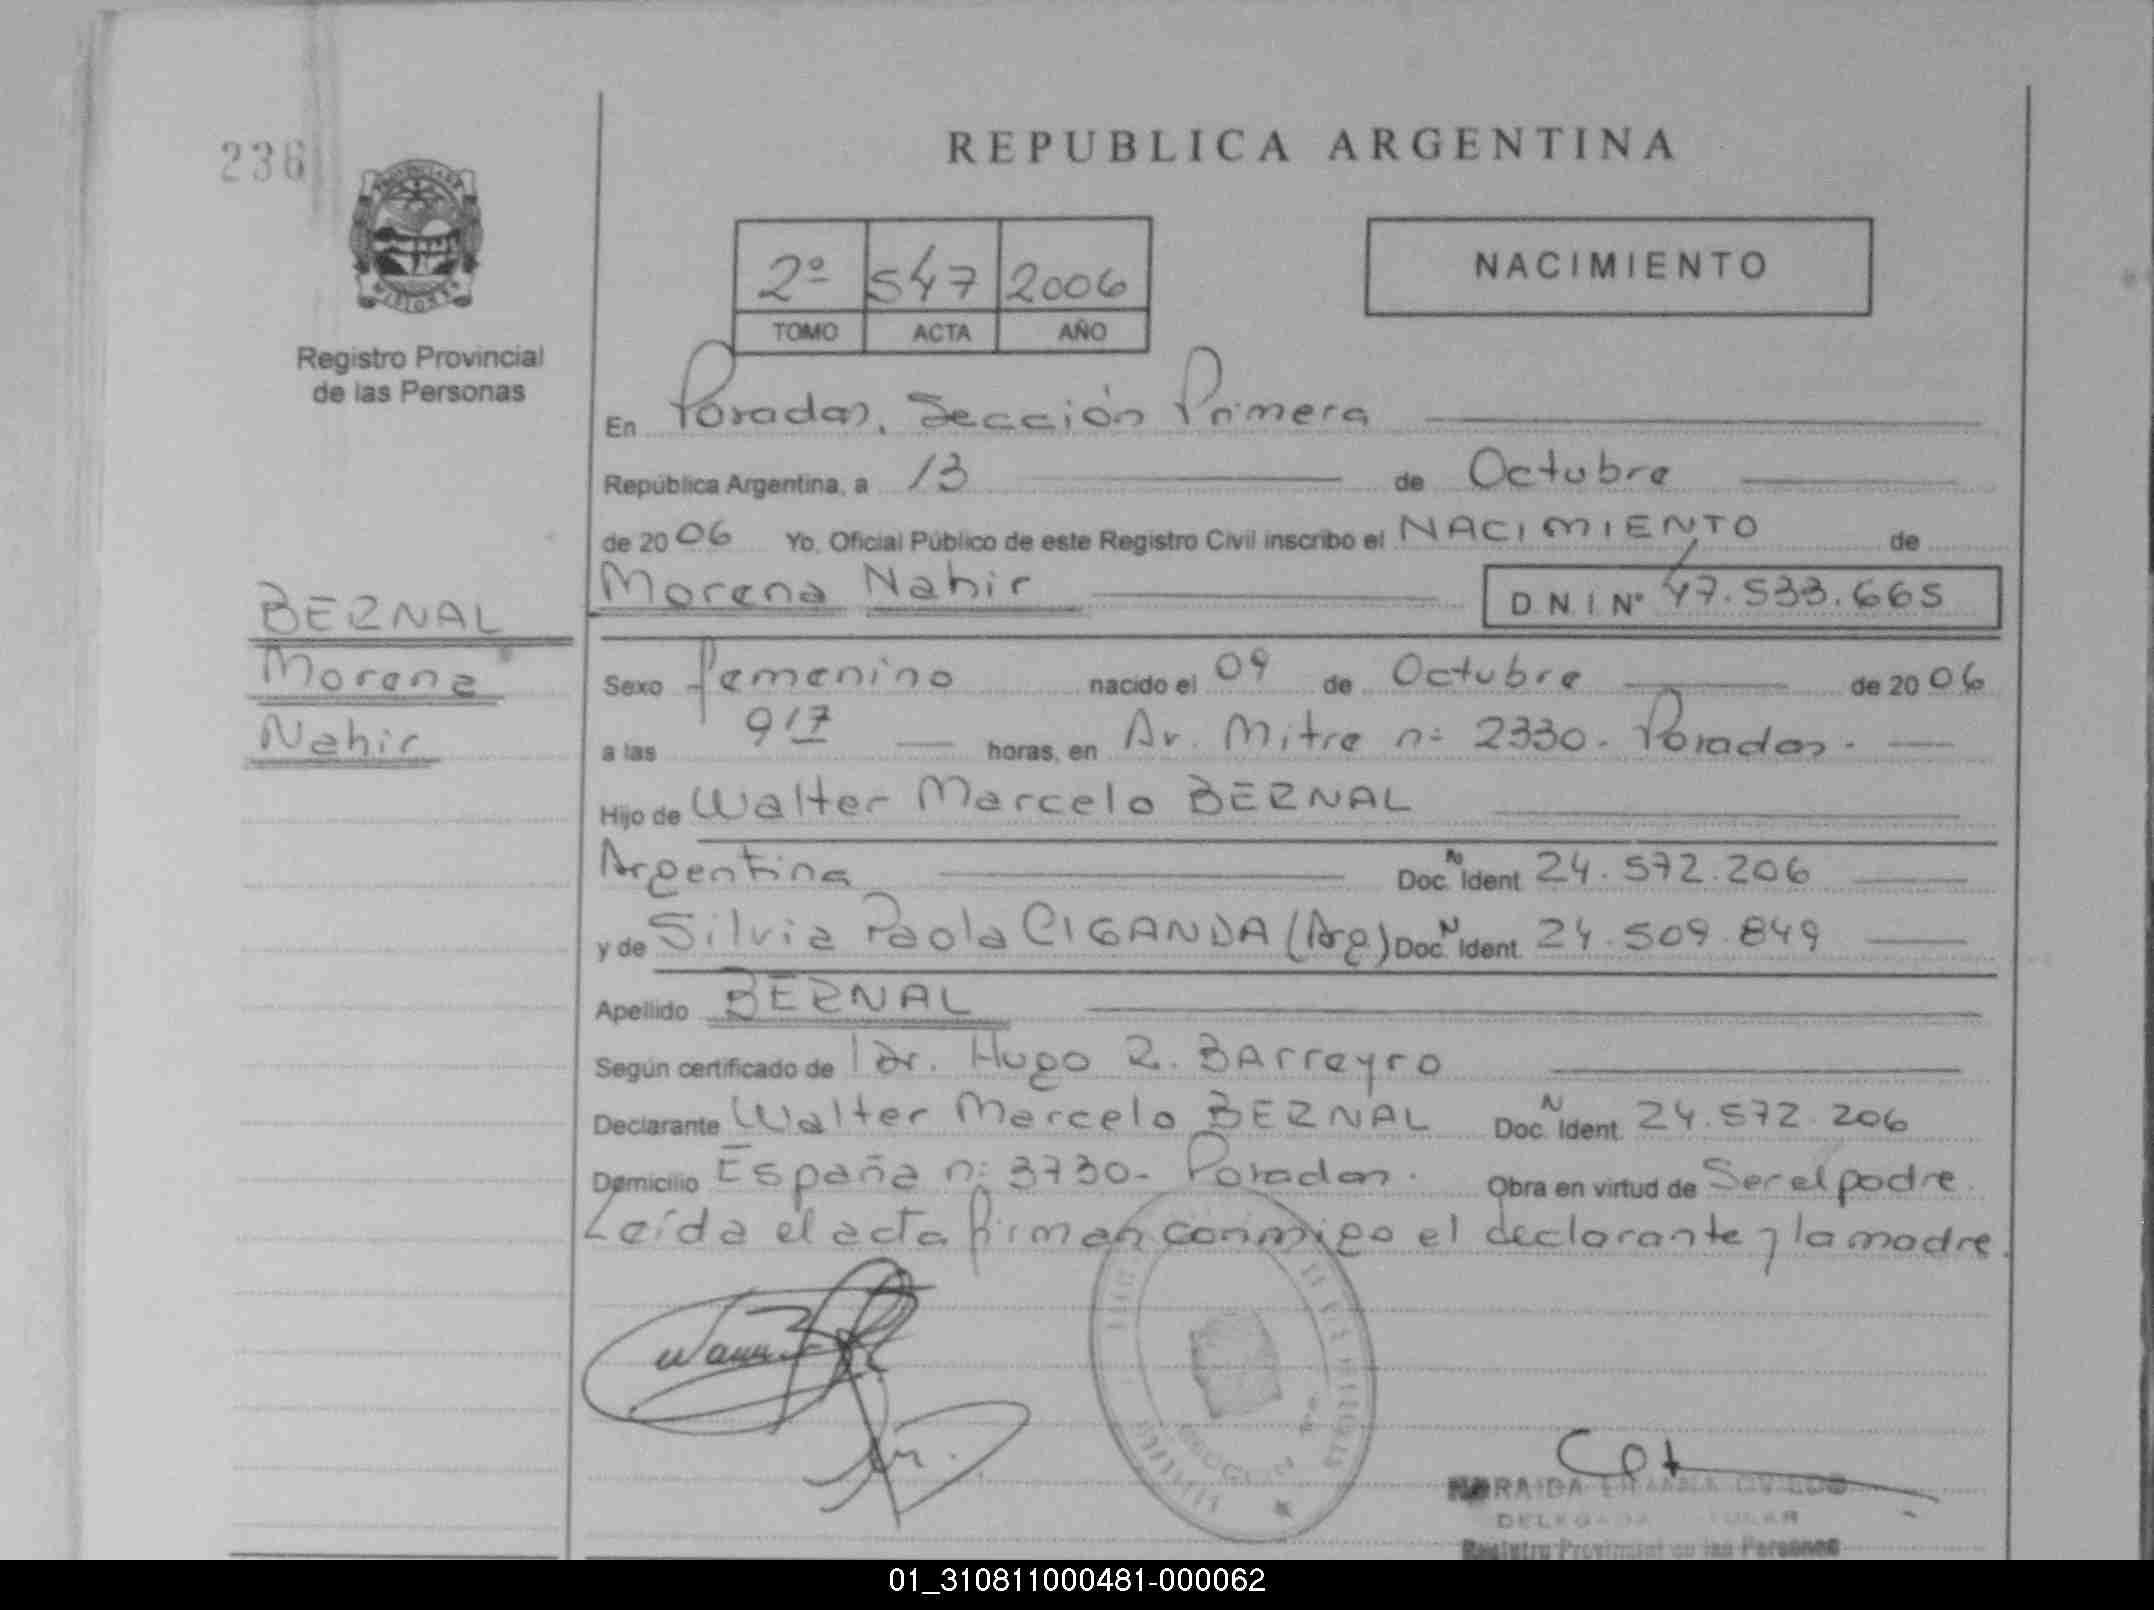 236
REPUBLICA ARGENTINA
2º 547 2006
TOMO ACTA AÑO
NACIMIENTO
MISIONES
Registro Provincial
de las Personas
En Posadas, Sección Primera
República Argentina, a 13 de Octubre
de 2006 Yo, Oficial Público de este Registro Civil inscribo el NACIMIENTO de
Morena Nahir D N I Nº 47.533.665
BERNAL
Morena
Nahir
Sexo femenino nacido el 09 de Octubre de 2006
a las 917 horas, en Av. Mitre n: 2330. Posadas.
Hijo de Walter Marcelo BERNAL
Argentina Doc. N Ident. 24.572.206
y de Silvia Paola CIGANDA (Arg.) Doc. N Ident. 24.509.849
Apellido BERNAL
Según certificado de Dr. Hugo R. BArreyro
Declarante Walter Marcelo BERNAL Doc. N Ident. 24.572.206
Domicilio España n: 3730- Posadas. Obra en virtud de Ser el padre.
Leída el acta firman conmigo el declarante y la madre.
Registro Provincial de las Personas
01_310811000481-000062